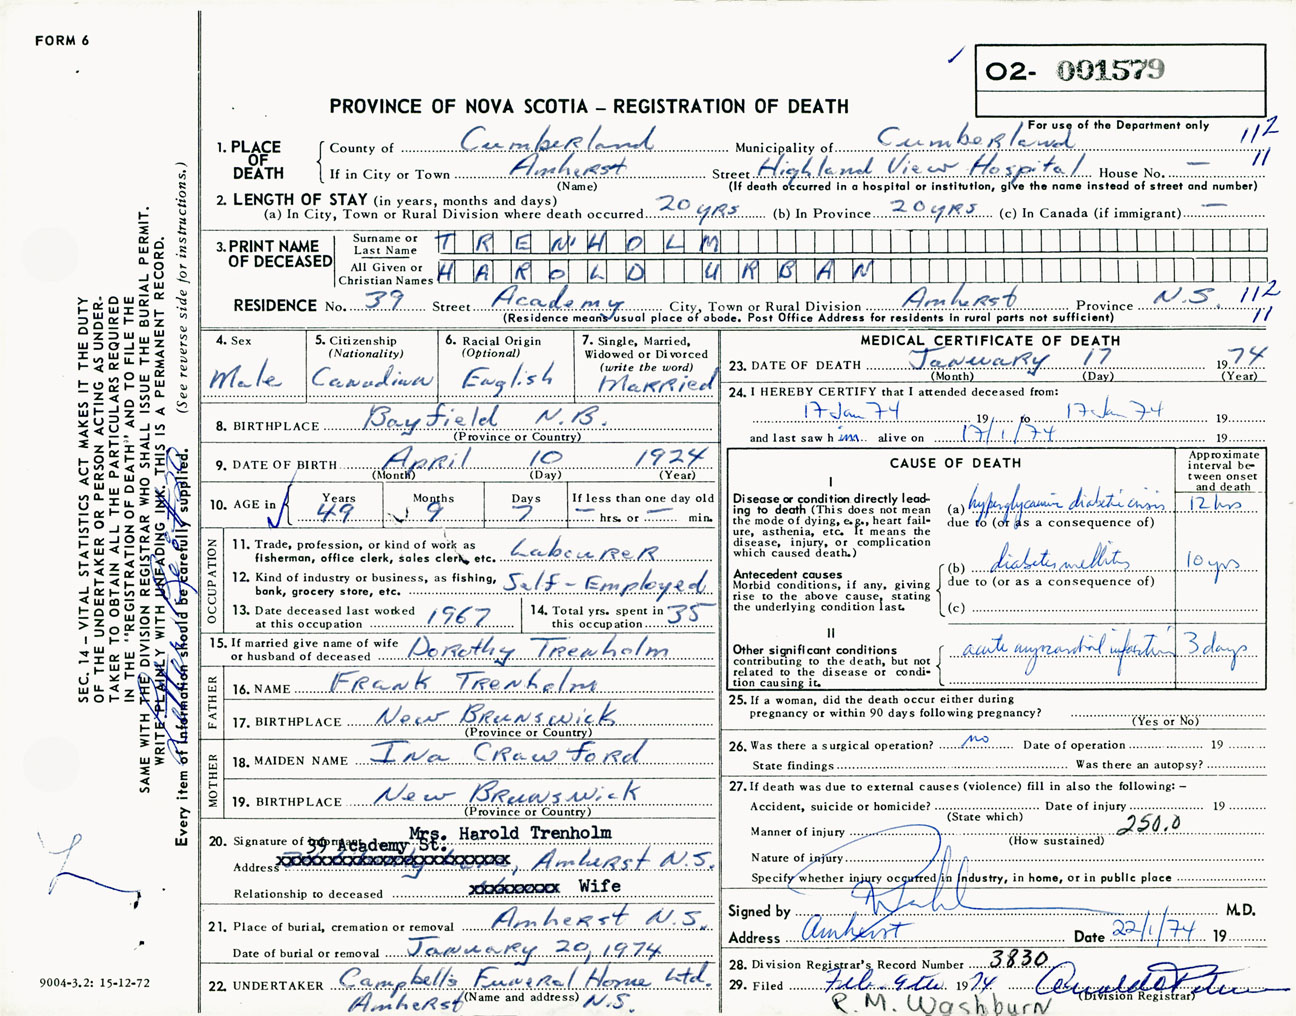 FORM 6
O2- 001579
PROVINCE OF NOVA SCOTIA – REGISTRATION OF DEATH
For use of the Department only
1. PLACE OF DEATH
County of Cumberland Municipality of Cumberland 112
If in City or Town Amherst Street Highland View Hospital House No. — 11
(Name) (If death occurred in a hospital or institution, give the name instead of street and number)
2. LENGTH OF STAY (in years, months and days)
(a) In City, Town or Rural Division where death occurred 20 yrs (b) In Province 20 yrs (c) In Canada (if immigrant) —
3. PRINT NAME OF DECEASED
Surname or Last Name TRENHOLM
All Given or Christian Names HAROLD URBAN
RESIDENCE No. 39 Street Academy City, Town or Rural Division Amherst Province N.S. 112
(Residence means usual place of abode. Post Office Address for residents in rural parts not sufficient) 11
4. Sex
Male
5. Citizenship
(Nationality)
Canadian
6. Racial Origin
(Optional)
English
7. Single, Married,
Widowed or Divorced
(write the word)
Married
8. BIRTHPLACE Bayfield N.B.
(Province or Country)
9. DATE OF BIRTH April 10 1924
(Month) (Day) (Year)
10. AGE in
Years Months Days If less than one day old
49 9 7 — hrs. or — min.
OCCUPATION
11. Trade, profession, or kind of work as
fisherman, office clerk, sales clerk, etc. Labourer
12. Kind of industry or business, as fishing,
bank, grocery store, etc. Self-Employed
13. Date deceased last worked
at this occupation 1967
14. Total yrs. spent in
this occupation 35
15. If married give name of wife
or husband of deceased Dorothy Trenholm
FATHER
16. NAME Frank Trenholm
17. BIRTHPLACE New Brunswick
(Province or Country)
MOTHER
18. MAIDEN NAME Ina Crawford
19. BIRTHPLACE New Brunswick
(Province or Country)
Mrs. Harold Trenholm
20. Signature of informant
39 Academy St.
Address Amherst N.S.
Relationship to deceased Wife
21. Place of burial, cremation or removal Amherst N.S.
Date of burial or removal January 20, 1974
22. UNDERTAKER Campbell's Funeral Home Ltd.
(Name and address)
Amherst N.S.
MEDICAL CERTIFICATE OF DEATH
23. DATE OF DEATH January 17 19 74
(Month) (Day) (Year)
24. I HEREBY CERTIFY that I attended deceased from:
17 Jan 74 19 to 17 Jan 74 19
and last saw h im alive on 17/1/74 19
CAUSE OF DEATH
Approximate interval between onset and death
I
Disease or condition directly leading to death (This does not mean the mode of dying, e.g., heart failure, asthenia, etc. It means the disease, injury, or complication which caused death.)
(a) hyperglycaemic diabetic crisis 12 hrs
due to (or as a consequence of)
Antecedent causes
Morbid conditions, if any, giving rise to the above cause, stating the underlying condition last.
(b) diabetes mellitus 10 yrs
due to (or as a consequence of)
(c)
II
Other significant conditions
contributing to the death, but not related to the disease or condition causing it.
acute myocardial infarction 3 days
25. If a woman, did the death occur either during
pregnancy or within 90 days following pregnancy?
(Yes or No)
26. Was there a surgical operation? no Date of operation 19
State findings Was there an autopsy?
27. If death was due to external causes (violence) fill in also the following: –
Accident, suicide or homicide? Date of injury 19
(State which)
Manner of injury 250.0
(How sustained)
Nature of injury
Specify whether injury occurred in industry, in home, or in public place
Signed by M.D.
Address Amherst Date 22/1/74 19
28. Division Registrar's Record Number 3830
29. Filed Feb. 9th 19 74
(Division Registrar)
R.M. Washburn
SEC. 14 – VITAL STATISTICS ACT MAKES IT THE DUTY
OF THE UNDERTAKER OR PERSON ACTING AS UNDERTAKER TO OBTAIN ALL THE PARTICULARS REQUIRED
IN THE "REGISTRATION OF DEATH" AND TO FILE THE
SAME WITH THE DIVISION REGISTRAR WHO SHALL ISSUE THE BURIAL PERMIT.
WRITE PLAINLY WITH UNFADING INK. THIS IS A PERMANENT RECORD.
Every item of information should be carefully supplied. (See reverse side for instructions.)
9004-3.2: 15-12-72